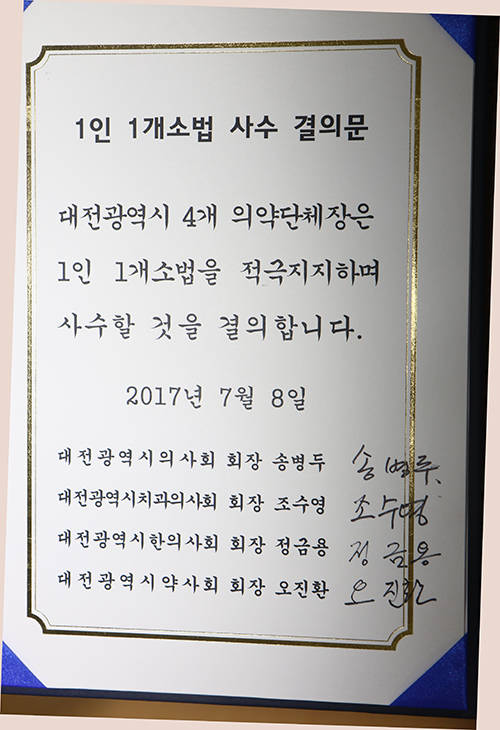 1인 1개소법 사수 결의문
대전광역시 4개 의약단체장은
1인 1개소법을 적극지지하며
사수할 것을 결의합니다.
2017년 7월 8일
대전광역시의사회 회장 송병두 송병두.
대전광역시치과의사회 회장 조수영 조수영
대전광역시한의사회 회장 정금용 정금용
대전광역시약사회 회장 오진환 오진환